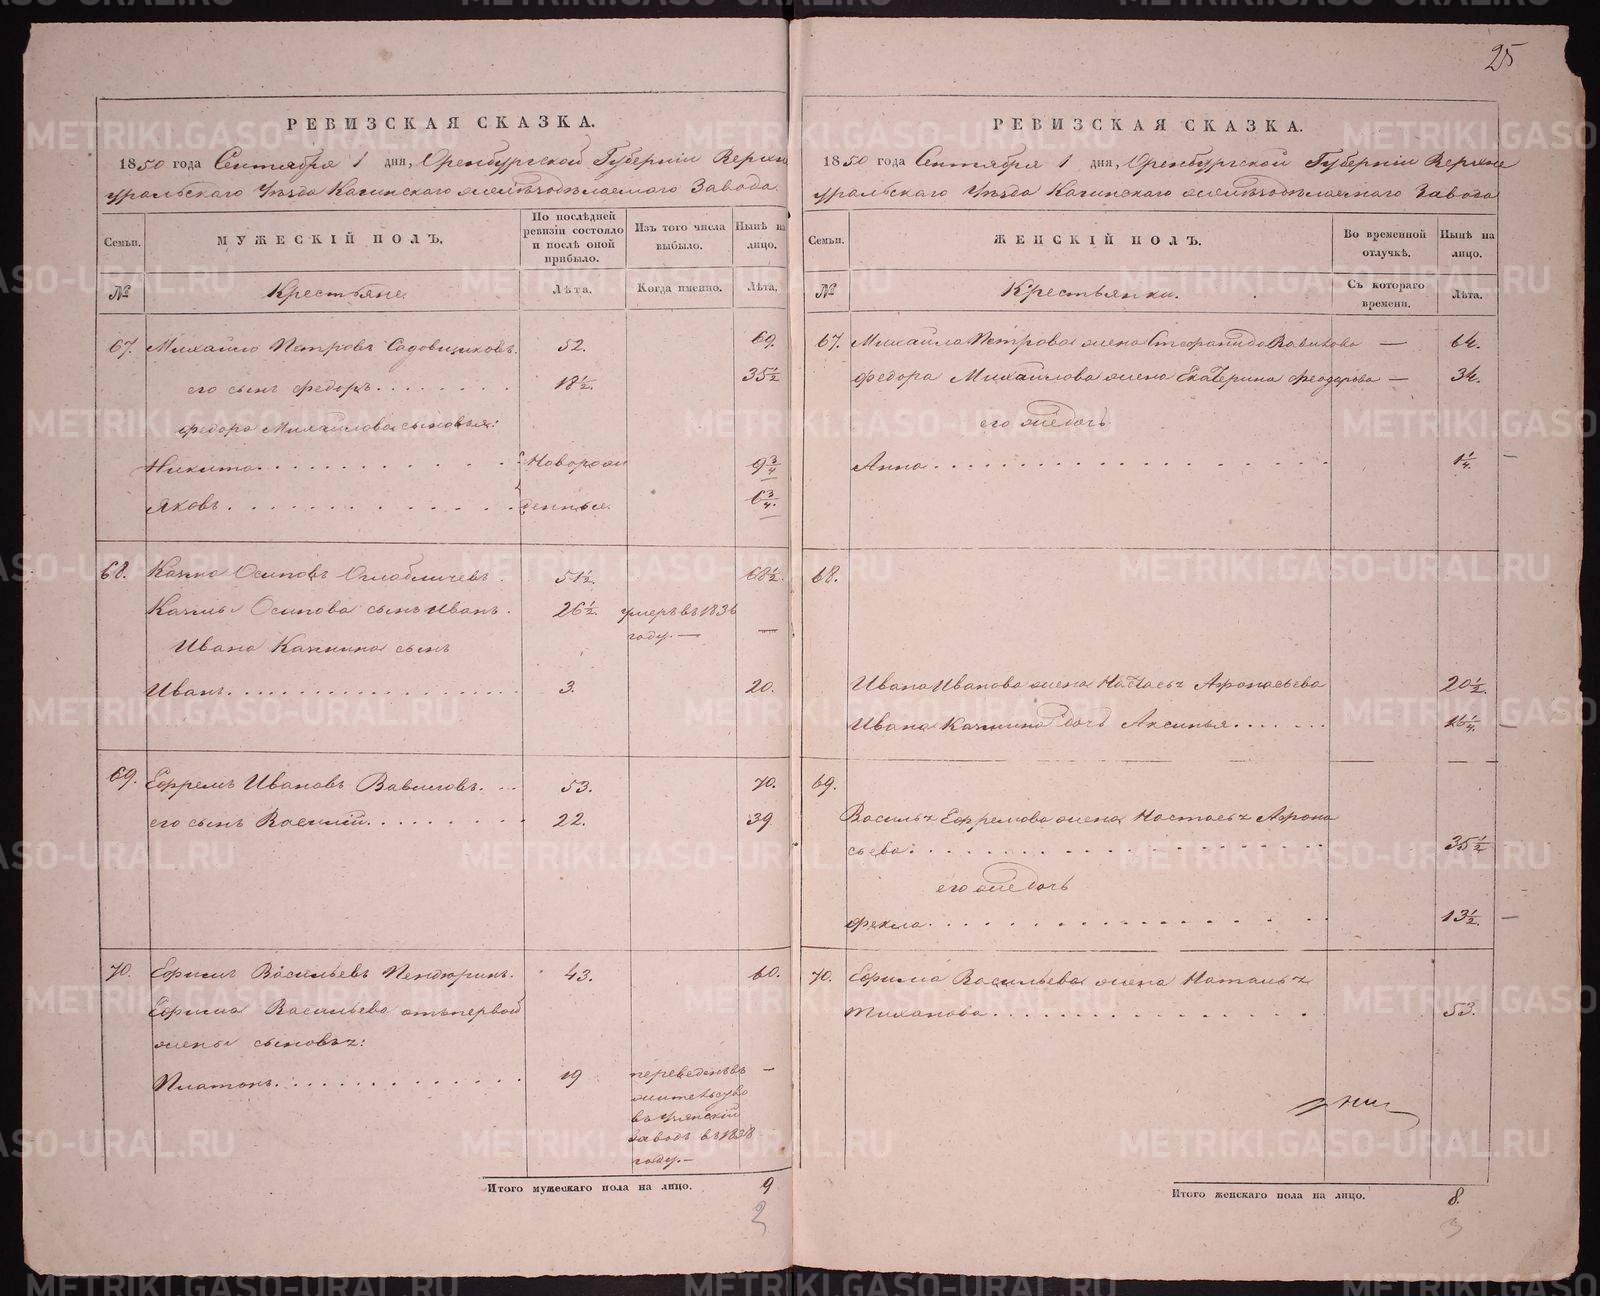 25
РЕВИЗСКАЯ СКАЗКА.
1850 года Сентября 1 дня, Оренбургской Губернiи Верхне
уральскаго Уѣзда Кагинскаго желѣзодѣлаемаго Завода
Семьи.
МУЖЕСКIЙ ПОЛЪ.
По послѣдней ревизiи состояло и послѣ оной прибыло.
Изъ того числа выбыло.
Нынѣ на лицо.
№
Крестьяне
Лѣта.
Когда именно.
Лѣта.
67. Михайло Петровъ Садовщиковъ. 52. 69.
его сынъ Федоръ. 18½. 35½
Федора Михайлова сыновья:
Никита. Новорож 9¾
Яковъ. денные 6¾.
68. Осиповъ 51½. 68½.
Осипова сынъ Иванъ. 26½. умеръ въ 1836
году. —
Ивана сынъ
Иванъ. 3. 20.
69. Ефремъ Ивановъ Вавиловъ. 53. 70.
его сынъ Василiй. 22. 39
70. Ефимъ Васильевъ Пендюринъ. 43. 60.
Ефима Васильева отъ первой
жены сыновъ:
Платонъ. 19 переведенъ въ —
жительство
въ Узянскiй
заводъ въ 1838
году.—
Итого мужескаго пола на лицо. 9
2
РЕВИЗСКАЯ СКАЗКА.
1850 года Сентября 1 дня, Оренбургской Губернiи Верхне
уральскаго Уѣзда Кагинскаго желѣзодѣлаемаго Завода
Семьи.
ЖЕНСКIЙ ПОЛЪ.
Во временной отлучкѣ.
Нынѣ на лицо.
№
Крестьянки.
Съ котораго времени.
Лѣта.
67. Михайла Петрова жена Стефанида — 64.
Федора Михайлова жена Екатерина Феодорова — 34.
его же дочь
Анна. 1¼.
68.
Ивана Иванова жена Настасья Афонасьева 20½.
Ивана дочь Аксинья. 16¼.
69.
Василья Ефремова жена Настасья Афона
сьева. 35½
его же дочь
Фекла. 13½.
70. Ефима Васильева жена Наталья
Тиханова. 53.
Итого женскаго пола на лицо. 8.
3
METRIKI.GASO-URAL.RU